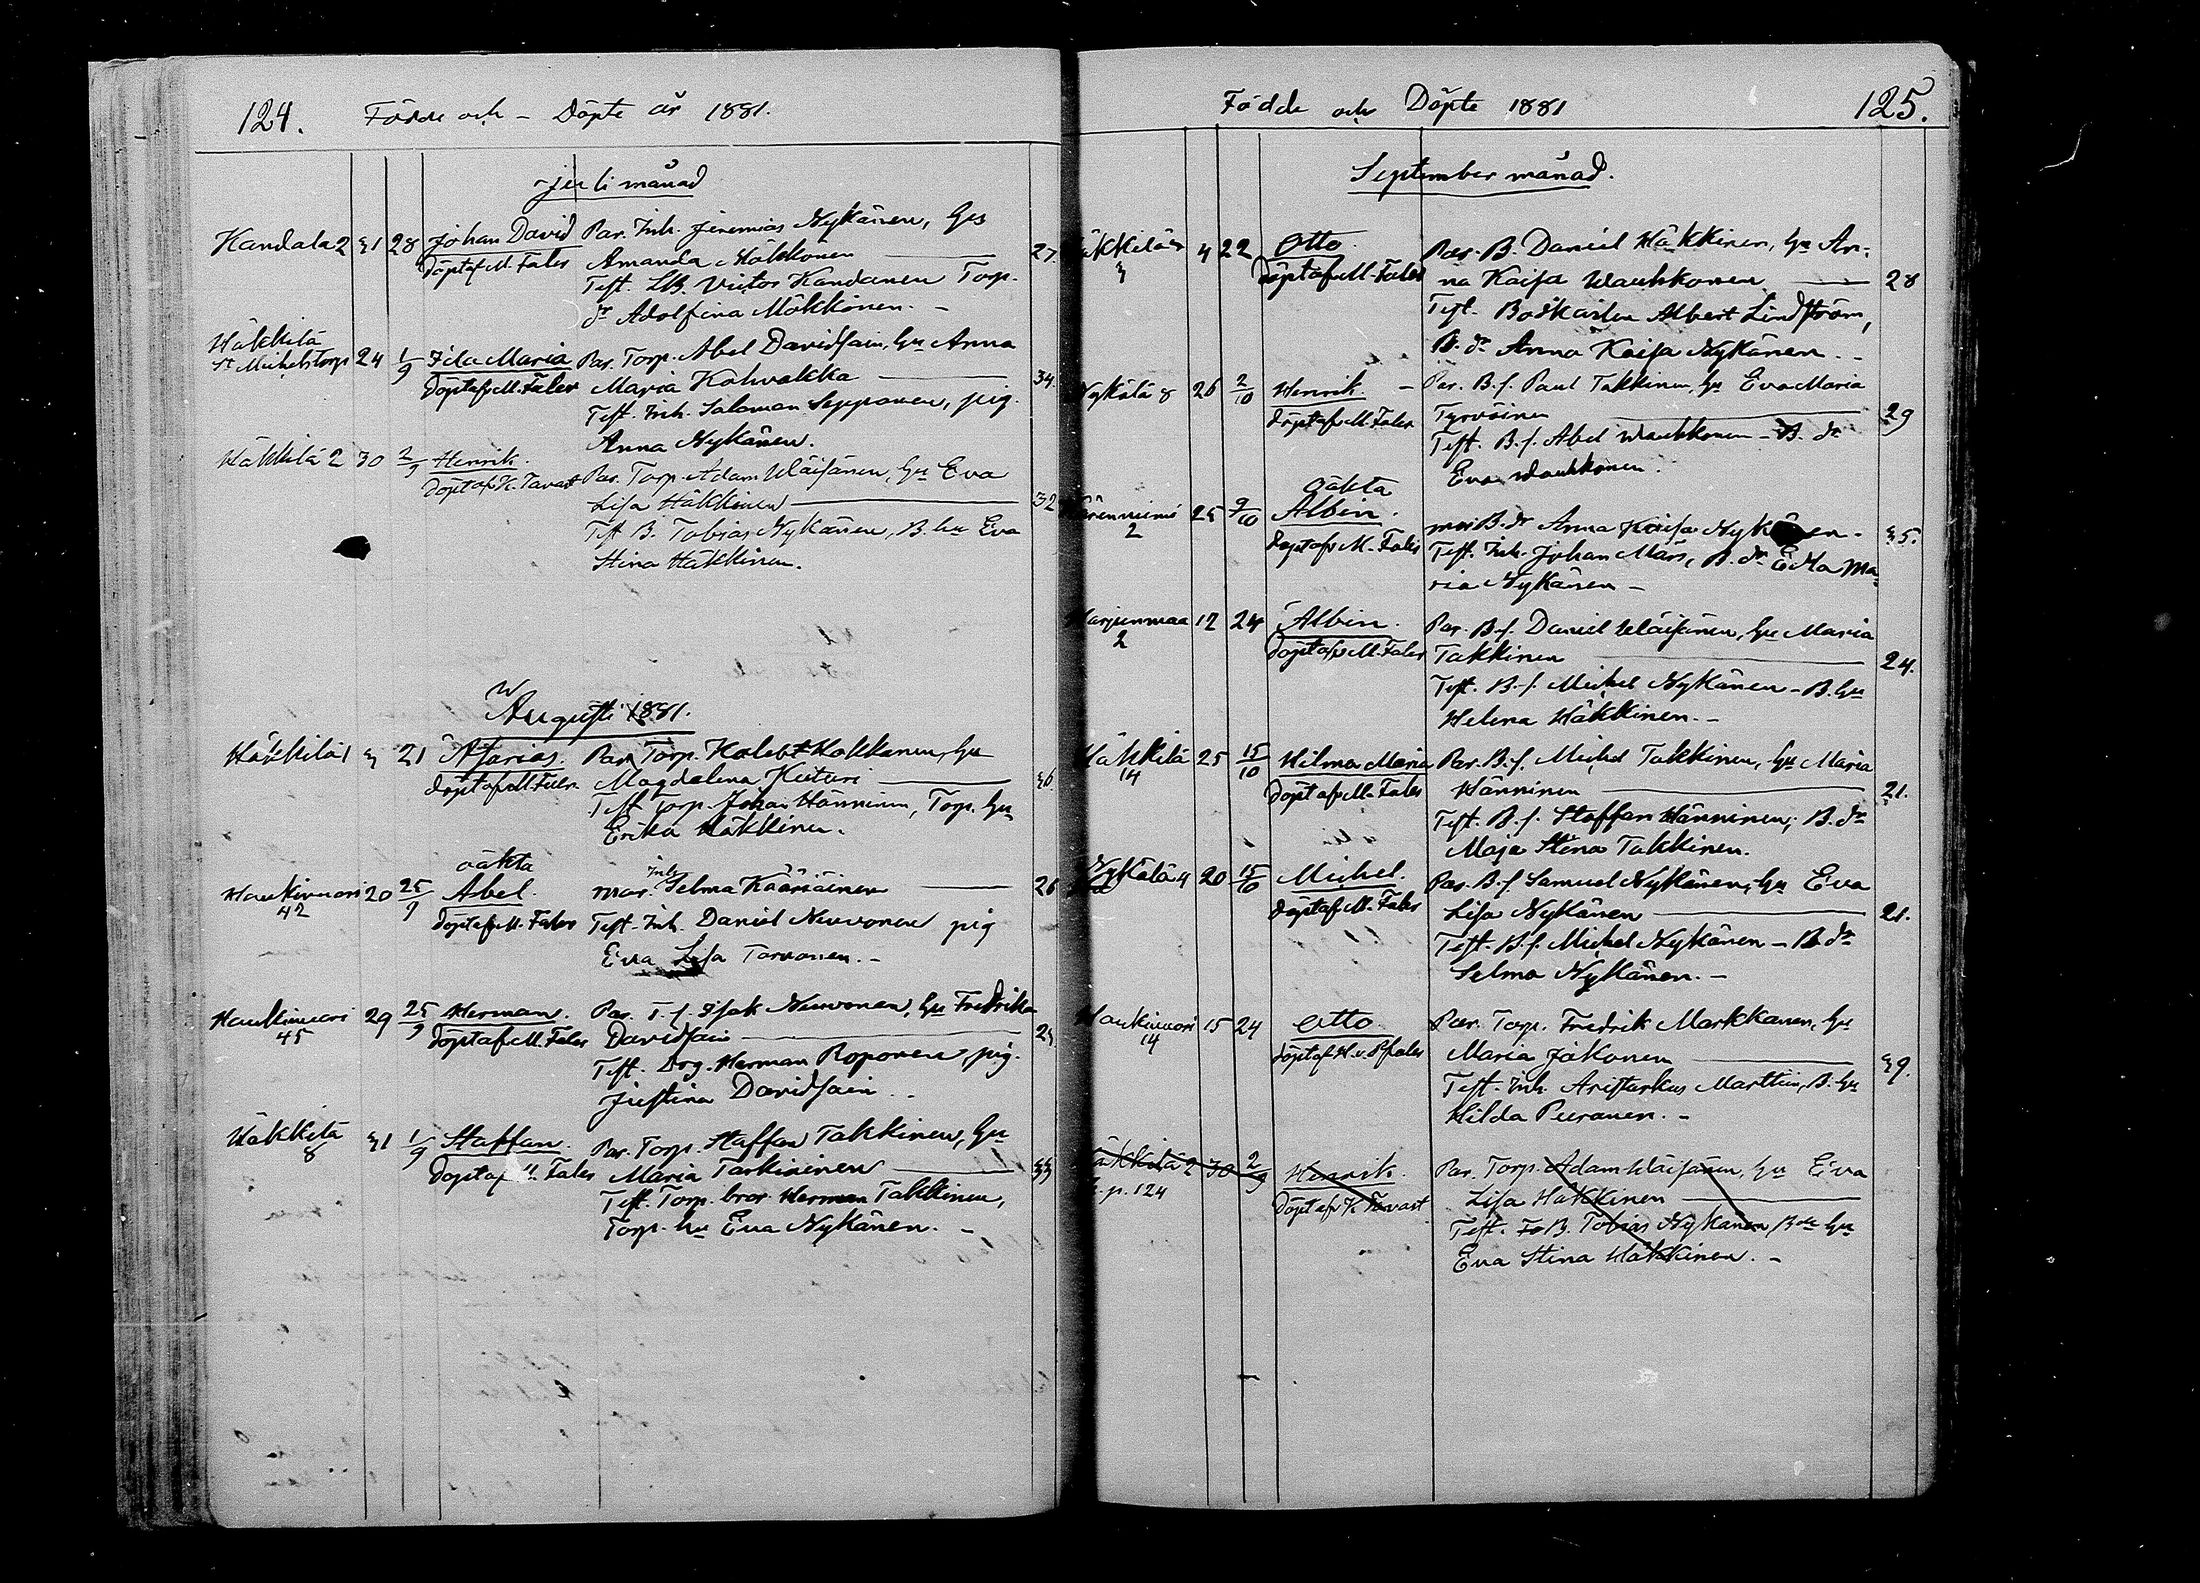 124. Födde och - Döpte år 1881.
Juli månad
Kandala 2 31 28 Johan David Par. Inh. Jeremias Nykänen, hu
döpt af M. Fales Amanda Häkkönen 27.
Test. LB. Victor Kandanen Torp.
dr Adolfina Mökkönen. -
Häkkilä
St Michelstorp 24 1/9 Ida Maria Par. Torp. Abel Davidsain, hu Anna
döpt af M. Fales Maria Kohvakka 34.
Test. Inh. Saloman Sepponen, pig.
Anna Nykänen.
Häkkilä 2 30 2/9 Henrik. Par. Torp. Adam Wäisänen, hu Eva
döpt af K. Tavast Lisa Häkkinen 32
Test B. Tobias Nykänen, B. hu Eva
Stina Häkkinen.
Augusti 1881.
Häkkilä 1 3 21 Asarias. Par. Torp. Kalebt Kokkanen, hu
döpt af M. Fales Magdalena Kuituri 36
Test Torp. Johan Hänninen, Torp. hu
Erika Häkkinen.
oäkta
Haukivuori 20 25/9 Abel. mor. Inh. Selma Kääriäinen 26
42 döpt af M. Fales Test. Inh. Daniel Neuvonen pig
Eva Lisa Torvonen. -
Haukivuori 29 25/9 Herman. Par. T. f. Isak Neuvonen, hu Fredrika
45 döpt af M. Fales Davidsain
Test. Drg. Herman Roponen pig.
Justina Davidsain
Häkkilä 31 1/9 Staffan. Par. Torp. Staffan Takkinen, hu
8 döpt af M. Fales Maria Tarkiainen 33
Test. Torp. bror Herman Takkinen,
Torp. hu Eva Nykänen. -
Födde och Döpte 1881 125.
September månad.
4 22 Otto Par. B. Daniel Häkkinen, hu An-
3 döpt af M. Fales na Kaisa Wauhkonen 28
Test. Albert Lindström,
B. dr Anna Kaisa Nykänen.
Nykälä 8 26 2/10 Henrik. - Par. B. f. Paul Takkinen, hu Eva Maria
döpt af M. Fales Tyrväinen 29
Test. B. f. Abel Wauhkonen - B. dr
Eva Wauhkonen.
oäkta
2 25 9/10 Albin. mor B. dr Anna Kaisa Nykänen. 35.
döpt af M. Fales Test. Inh. Johan Mars, B. dr Eva Ma-
ria Nykänen -
Harjunmaa 12 24 Albin. Par. B. f. Daniel Wäisänen, hu Maria
2 döpt af M. Fales Takkinen 24.
Test. B. f. Michel Nykänen - B. hu
Helena Häkkinen. -
Häkkilä 25 15/10 Hilma Maria Par. B. f. Michel Takkinen, hu Maria
14 döpt af M. Fales Hänninen 21.
Test. B. f. Staffan Hänninen; B. dr
Maja Stina Takkinen.
Nykälä 4 20 15/10 Michel. Par. B. f. Samuel Nykänen, hu Eva
döpt af M. Fales Lisa Nykänen 21.
Test. B. f. Michel Nykänen - B dr
Selma Nykänen. -
Haukivuori 15 24 Otto Par. Torp. Fredrik Markkanen, hu
14 döpt af Maria Jäkonen 39.
Test. Inh. Aristarkus Marttin, B. hu
Hilda Puranen. -
Häkkilä 2 30 2/9 Henrik. Par. Torp. Adam Wäisänen, hu Eva
p. 124 döpt af K. Tavast Lisa Häkkinen
Test. B. Tobias Nykänen, hu
Eva Stina Häkkinen. -